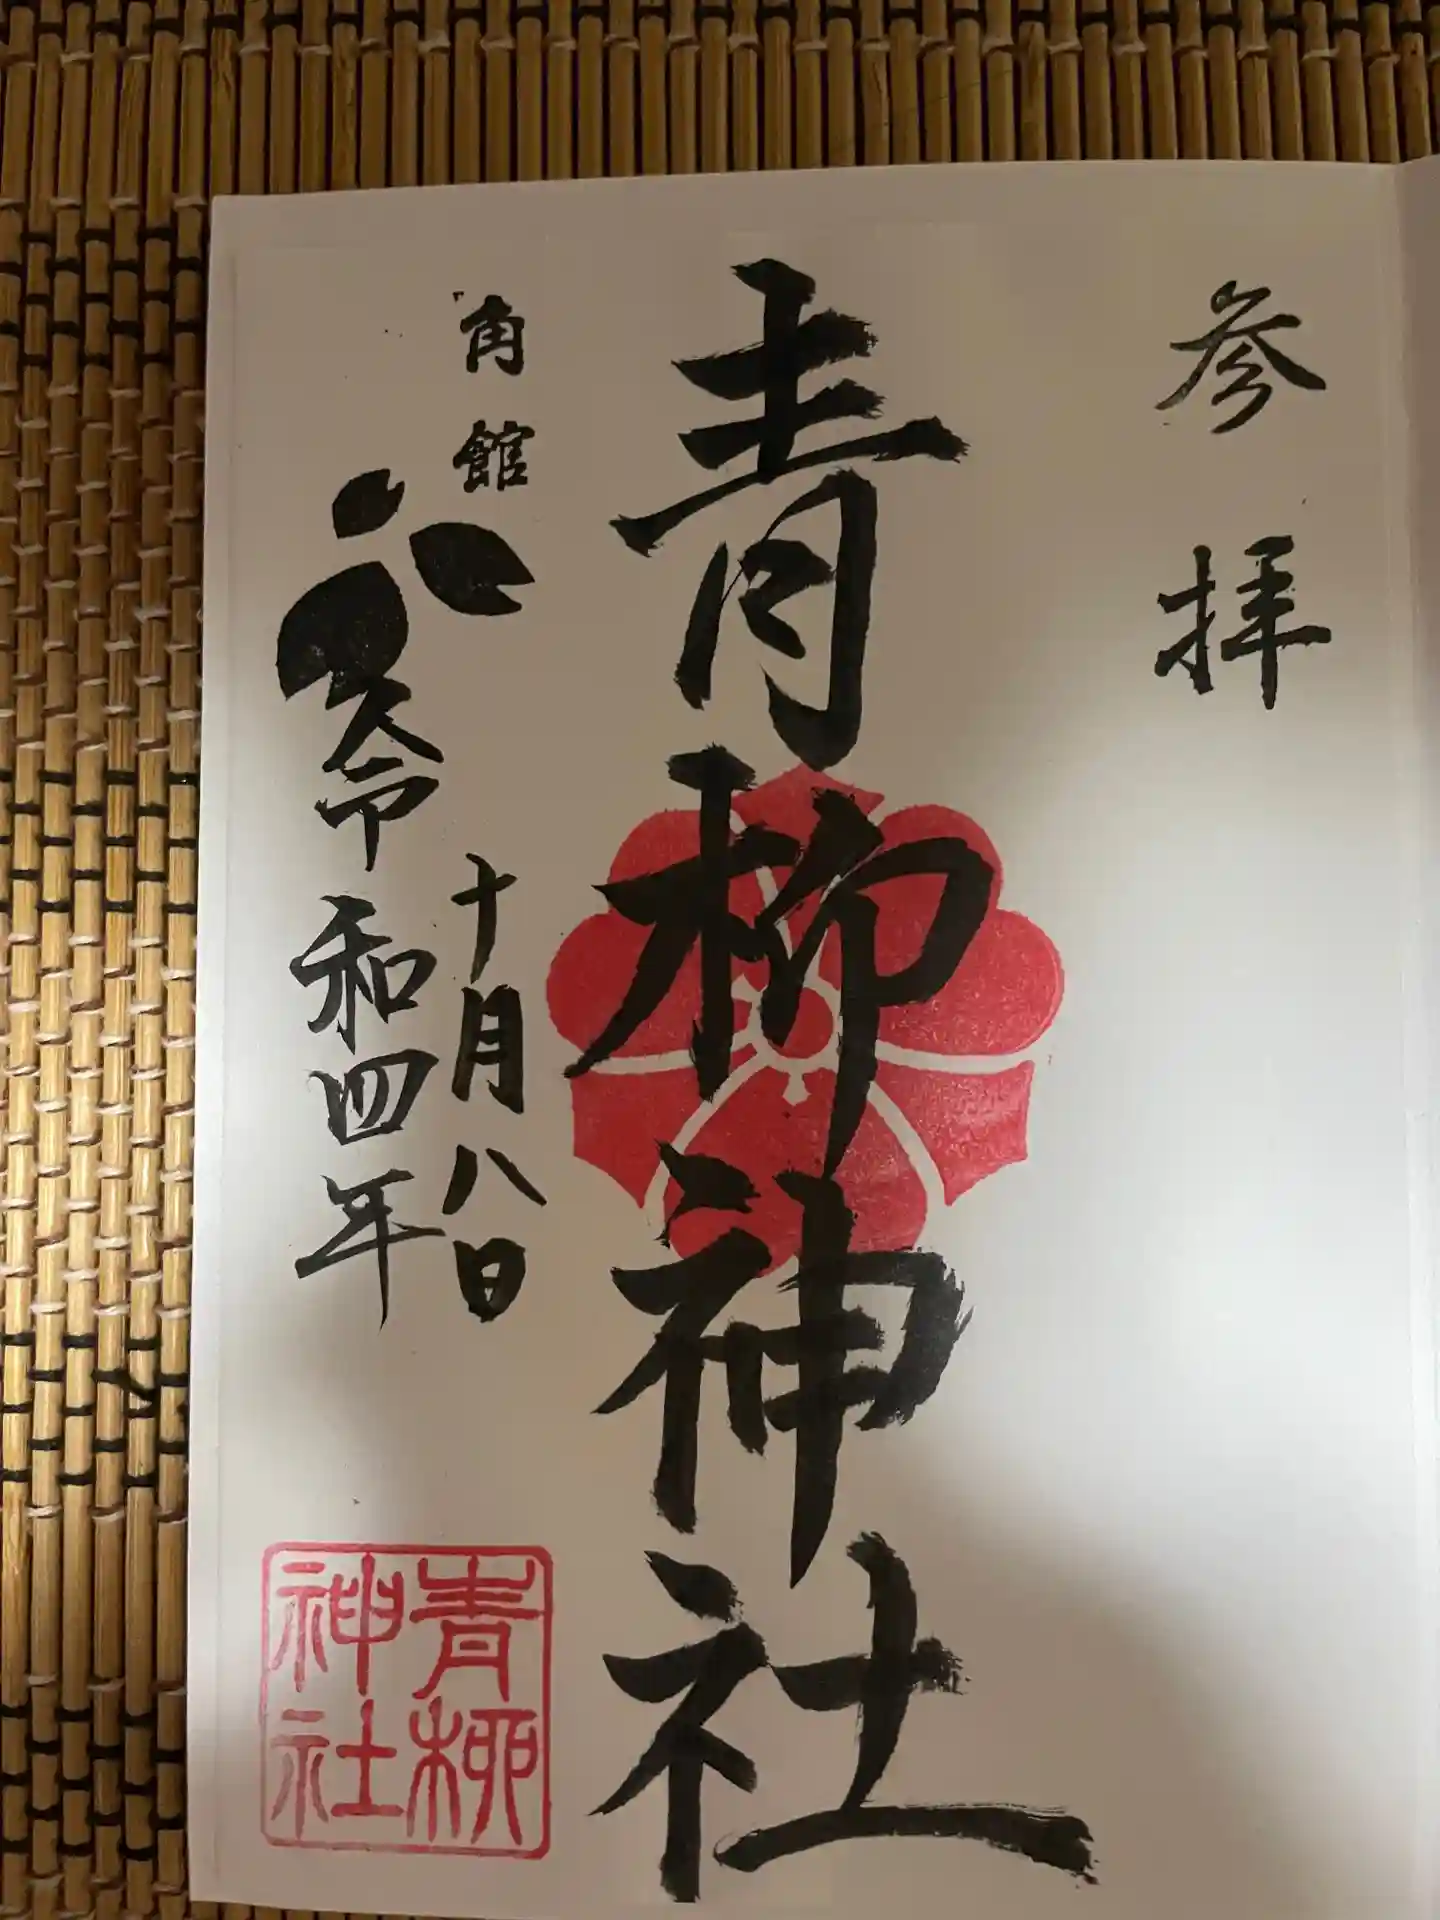 参拝
青柳神社
角館
十月八日
令和四年
青柳
神社